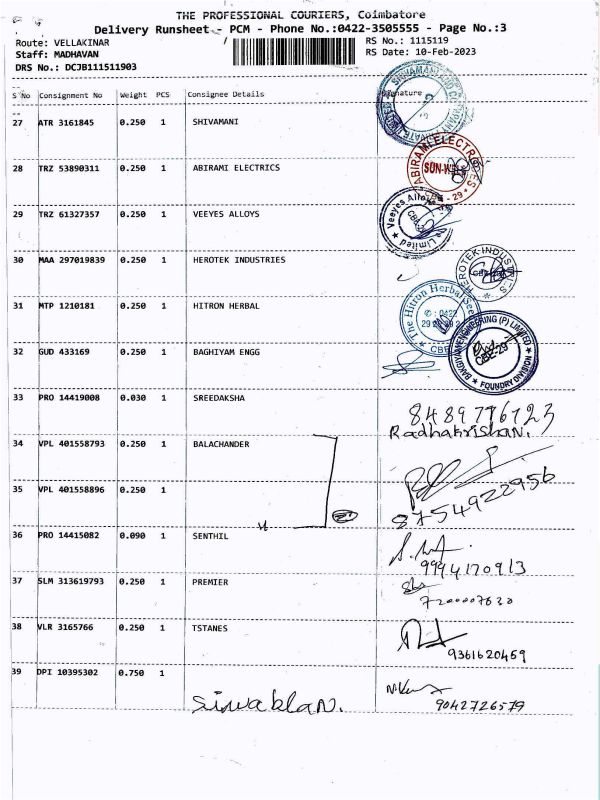 THE PROFESSIONAL COURIERS, Coimbatore
Delivery Runsheet - PCM - Phone No.:0422-3505555 - Page No.:3
Route: VELLAKINAR RS No.: 1115119
Staff: MADHAVAN RS Date: 10-Feb-2023
DRS No.: DCJB111511903
S No Consignment No Weight PCS Consignee Details Signature
27 ATR 3161845 0.250 1 SHIVAMANI
28 TRZ 53890311 0.250 1 ABIRAMI ELECTRICS
ABIRAMI ELECTRO
29 TRZ 61327357 0.250 1 VEEYES ALLOYS
Veeyes Alloys Limited
30 MAA 297019839 0.250 1 HEROTEK INDUSTRIES
HEROTEK INDUSTRIES
31 MTP 1210181 0.250 1 HITRON HERBAL
The Hitron Herbal
32 GUD 433169 0.250 1 BAGHIYAM ENGG
ENGINEERING (P) LIMITED
CBE-29
FOUNDRY DIVISION
33 PRO 14419008 0.030 1 SREEDAKSHA
8489776723
Radhakrishan.
34 VPL 401558793 0.250 1 BALACHANDER
35 VPL 401558896 0.250 1
8754922956
36 PRO 14415082 0.090 1 SENTHIL
9994170913
37 SLM 313619793 0.250 1 PREMIER
38 VLR 3165766 0.250 1 TSTANES
9361620459
39 DPI 10395302 0.750 1
9042726579